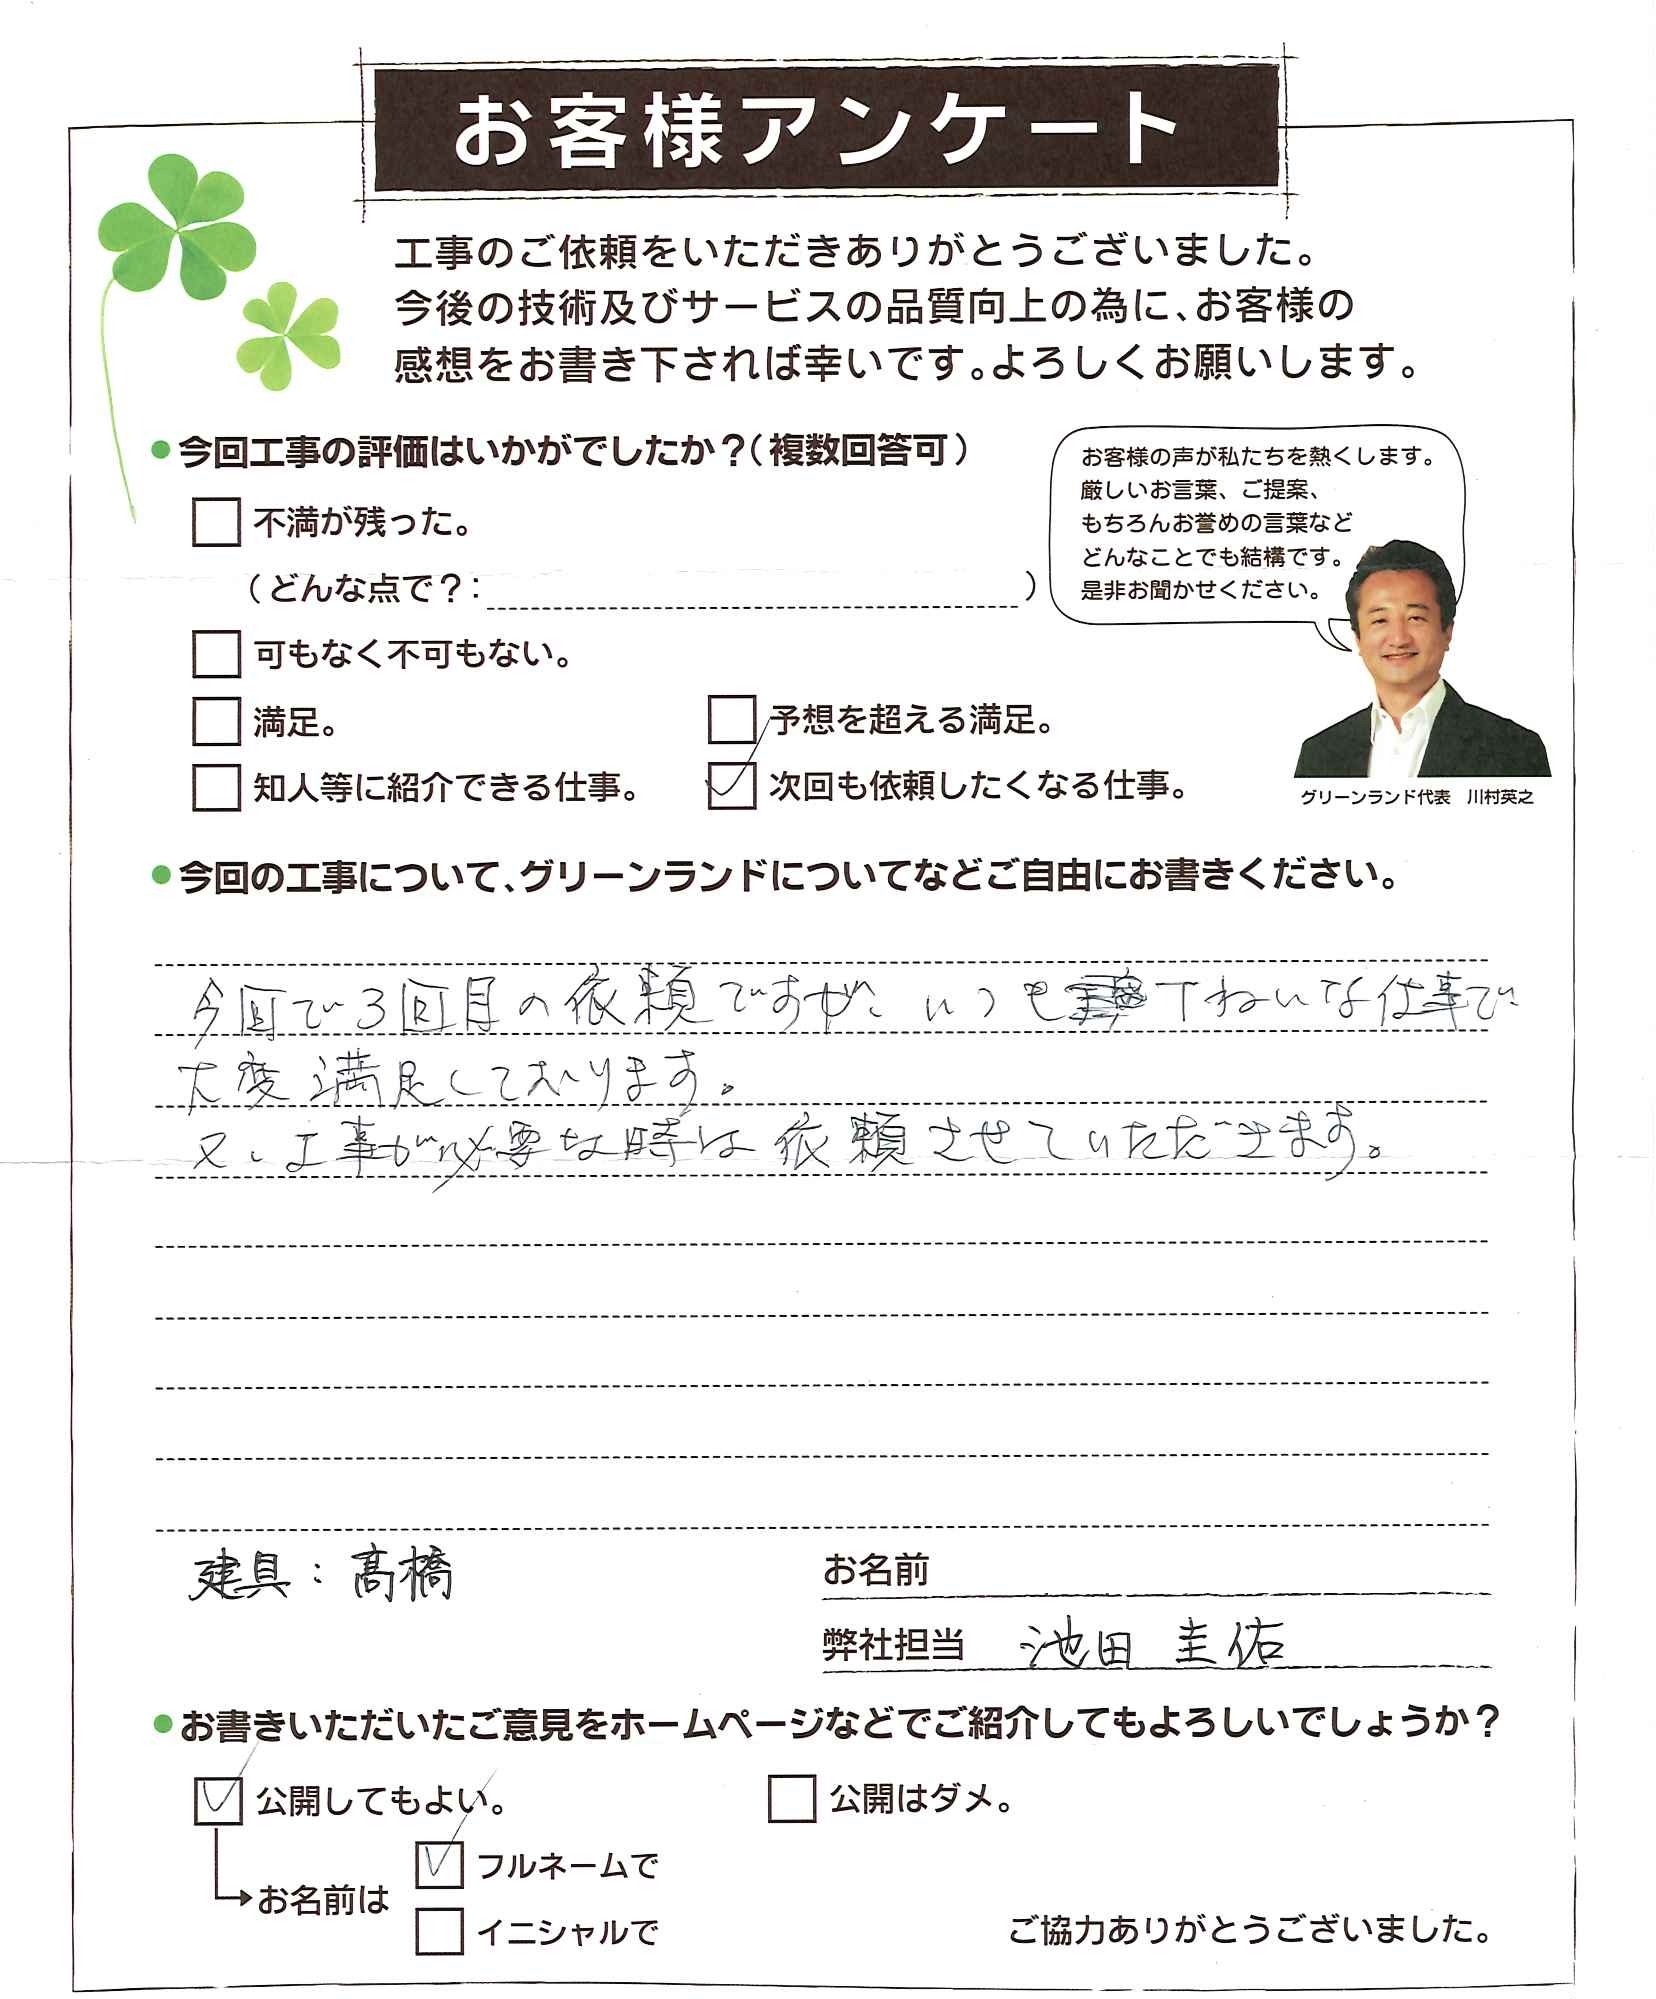 お客様アンケート
工事のご依頼をいただきありがとうございました。
今後の技術及びサービスの品質向上の為に、お客様の
感想をお書き下されば幸いです。よろしくお願いします。
●今回工事の評価はいかがでしたか？（複数回答可）
不満が残った。
（どんな点で？：　）
可もなく不可もない。
満足。
予想を超える満足。
知人等に紹介できる仕事。
次回も依頼したくなる仕事。
お客様の声が私たちを熱くします。
厳しいお言葉、ご提案、
もちろんお誉めの言葉など
どんなことでも結構です。
是非お聞かせください。
グリーンランド代表　川村英之
●今回の工事について、グリーンランドについてなどご自由にお書きください。
今回で3回目の依頼ですが、いつも丁ねいな仕事で
大変満足しております。
又、工事が必要な時は依頼させていただきます。
建具：髙橋
お名前
弊社担当　池田 圭佑
●お書きいただいたご意見をホームページなどでご紹介してもよろしいでしょうか？
公開してもよい。
公開はダメ。
お名前は
フルネームで
イニシャルで
ご協力ありがとうございました。